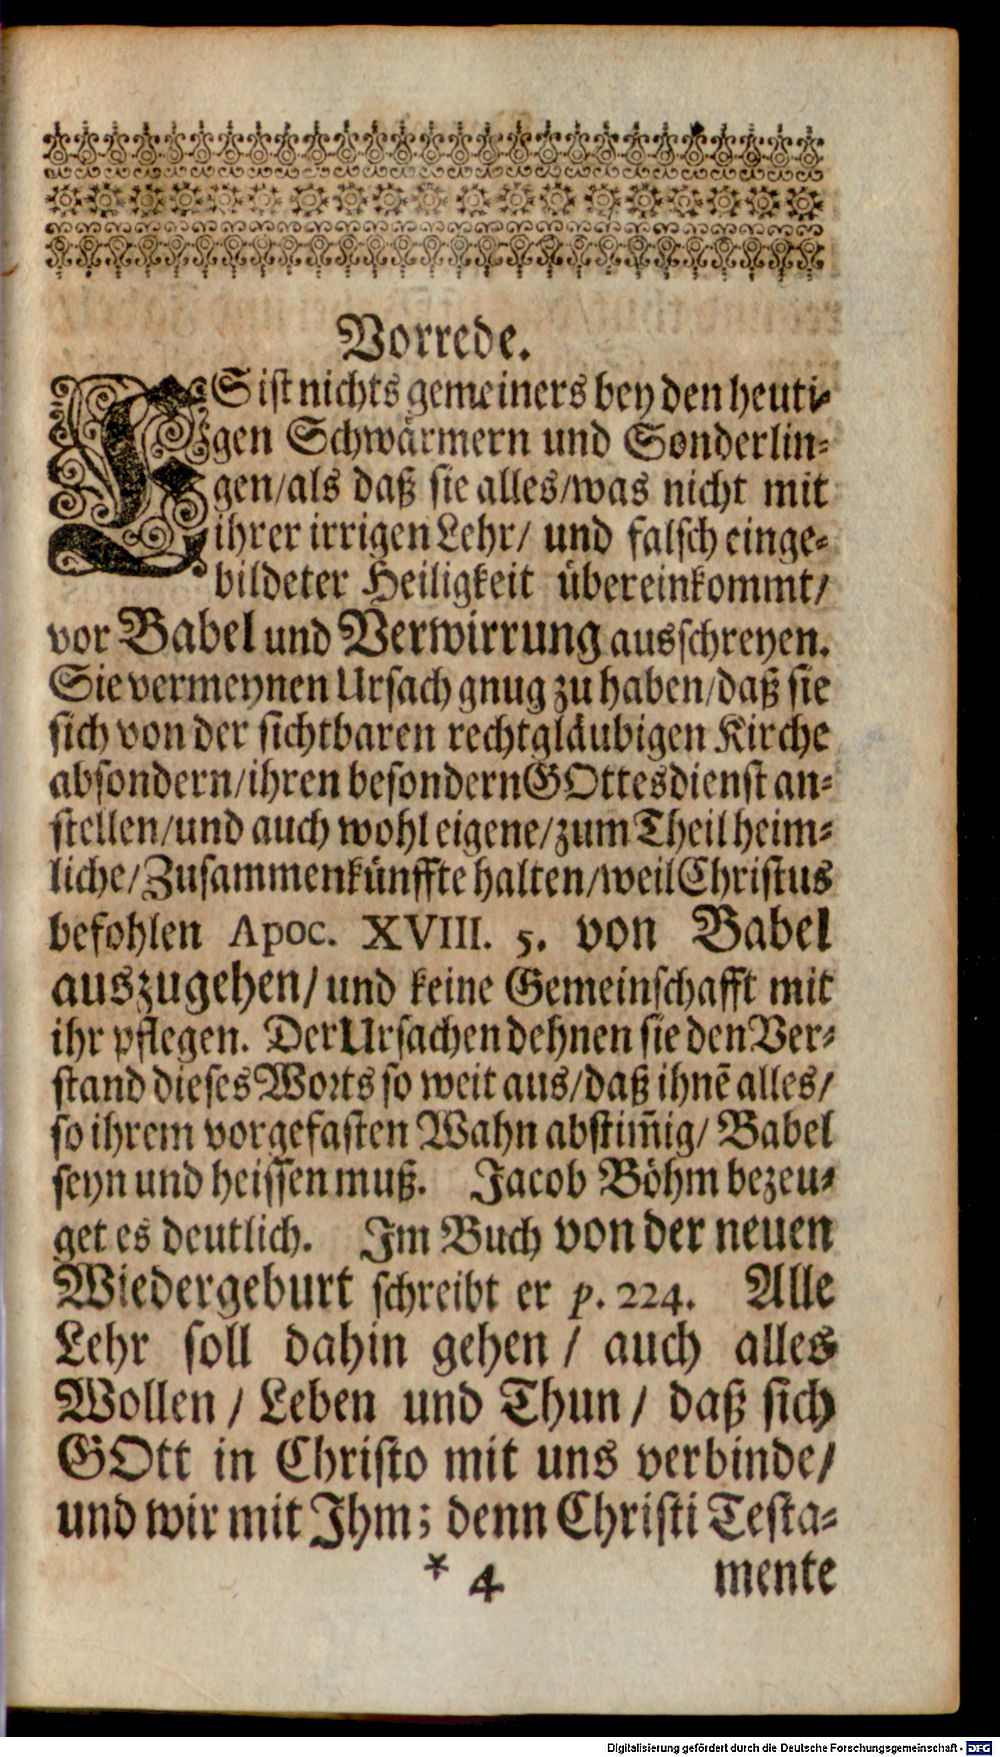 Vorrede.
ES ist nichts gemeiners bey den heuti-
gen Schwärmern und Sonderlin-
gen/als daß sie alles/was nicht mit
ihrer irrigen Lehr/ und falsch einge-
bildeter Heiligkeit übereinkommt/
vor Babel und Verwirrung ausschreyen.
Sie vermeynen Ursach gnug zu haben/daß sie
sich von der sichtbaren rechtgläubigen Kirche
absondern/ihren besondern GOttesdienst an-
stellen/und auch wohl eigene/zum Theil heim-
liche/Zusammenkünffte halten/weil Christus
befohlen Apoc. XVIII. 5. von Babel
auszugehen/ und keine Gemeinschafft mit
ihr pflegen. Der Ursachen dehnen sie den Ver-
stand dieses Worts so weit aus/daß ihnẽ alles/
so ihrem vorgefasten Wahn abstim̃ig/ Babel
seyn und heissen muß. Jacob Böhm bezeu-
get es deutlich. Im Buch von der neuen
Wiedergeburt schreibt er p. 224. Alle
Lehr soll dahin gehen / auch alles
Wollen / Leben und Thun / daß sich
GOtt in Christo mit uns verbinde/
und wir mit Ihm; denn Christi Testa-
* 4 mente
Digitalisierung gefördert durch die Deutsche Forschungsgemeinschaft - DFG